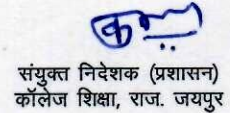 संयुक्त निदेशक (प्रशासन)
कॉलेज शिक्षा, राज. जयपुर